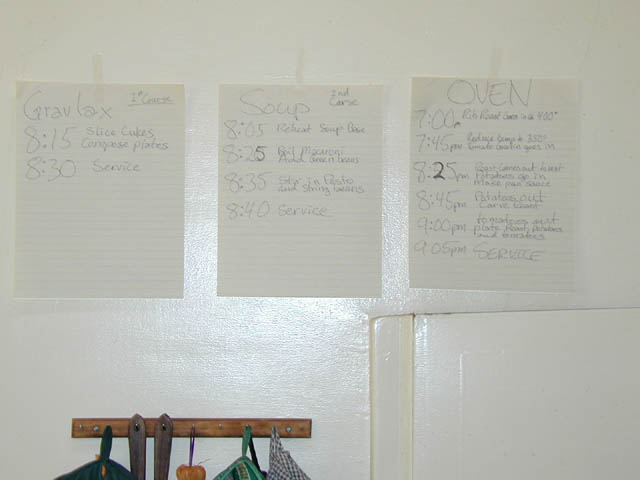 Gravlax 1st Course
8:15 Slice Cukes,
Compose plates
8:30 Service
Soup 2nd
Corse
8:05 Reheat Soup Base
8:25 Boil Macaroni
Add Green beans
8:35 Stir in Pesto
and string beans
8:40 Service
OVEN
7:00 Rib Roast Goes in @ 400°
7:45pm Reduce temp to 350°
Tomato Gratin goes in
8:25pm Roast comes out to rest
Potatoes go in
Make pan sauce
8:45pm Potatoes out
Carve Roast
9:00pm tomatoes out
plate Roast, Potatoes
and tomatoes
9:05pm SERVICE